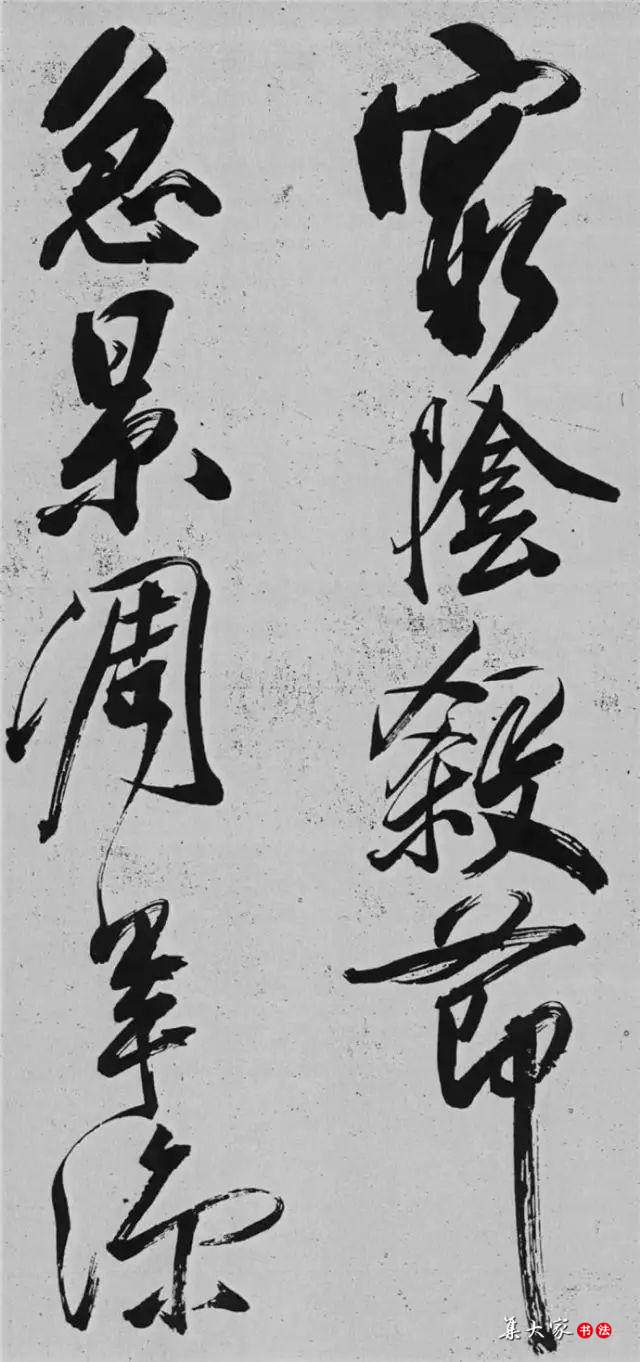 窮陰殺節
急景凋年涼
集大家书法